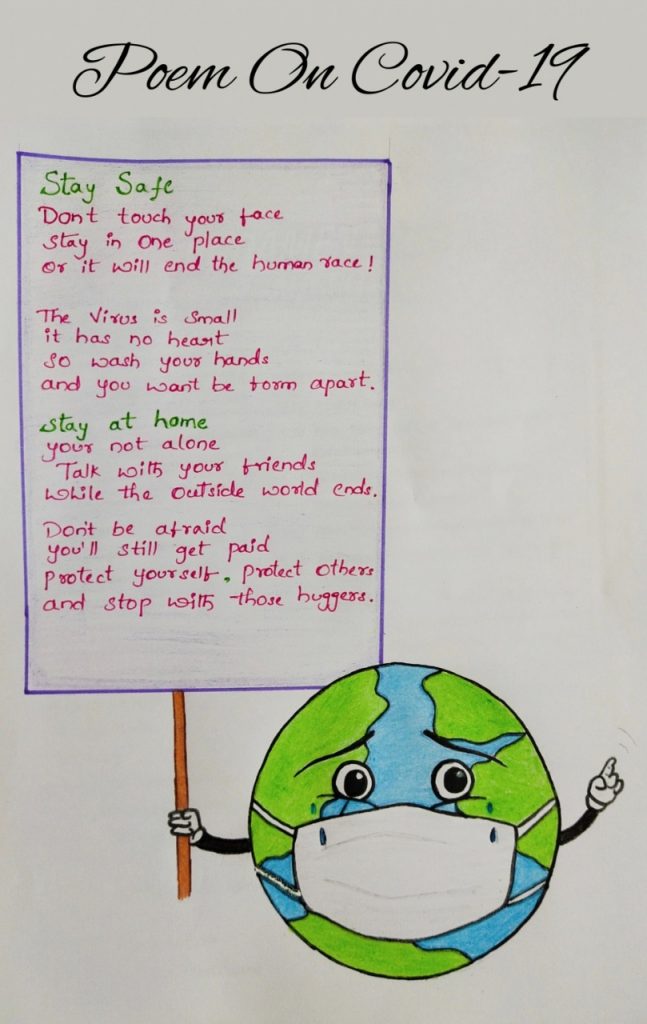 Poem On Covid-19
Stay Safe
Don't touch your face
stay in one place
or it will end the human race!
The Virus is small
it has no heart
so wash your hands
and you want be torm apart.
stay at home
your not alone
Talk with your friends
while the outside world ends.
Don't be afraid
you'll still get paid
protect yourself, protect others
and stop with those huggers.